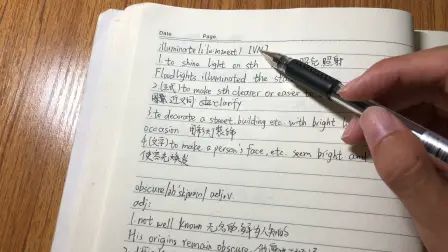 Date Page
illuminate [VN]
1 to shine light on sth 照亮 照射
Floodlights illuminated the sta
2 (正式) to make sth clearer or easier to
近义词 clarify
3 to decorate a street, building etc. with bright l
occasion 用彩灯装饰
4 (文学) to make a person's face, etc. seem bright and
使容光焕发
obscure adj v.
adj:
1 not well known 无名的
His origins remain obscure